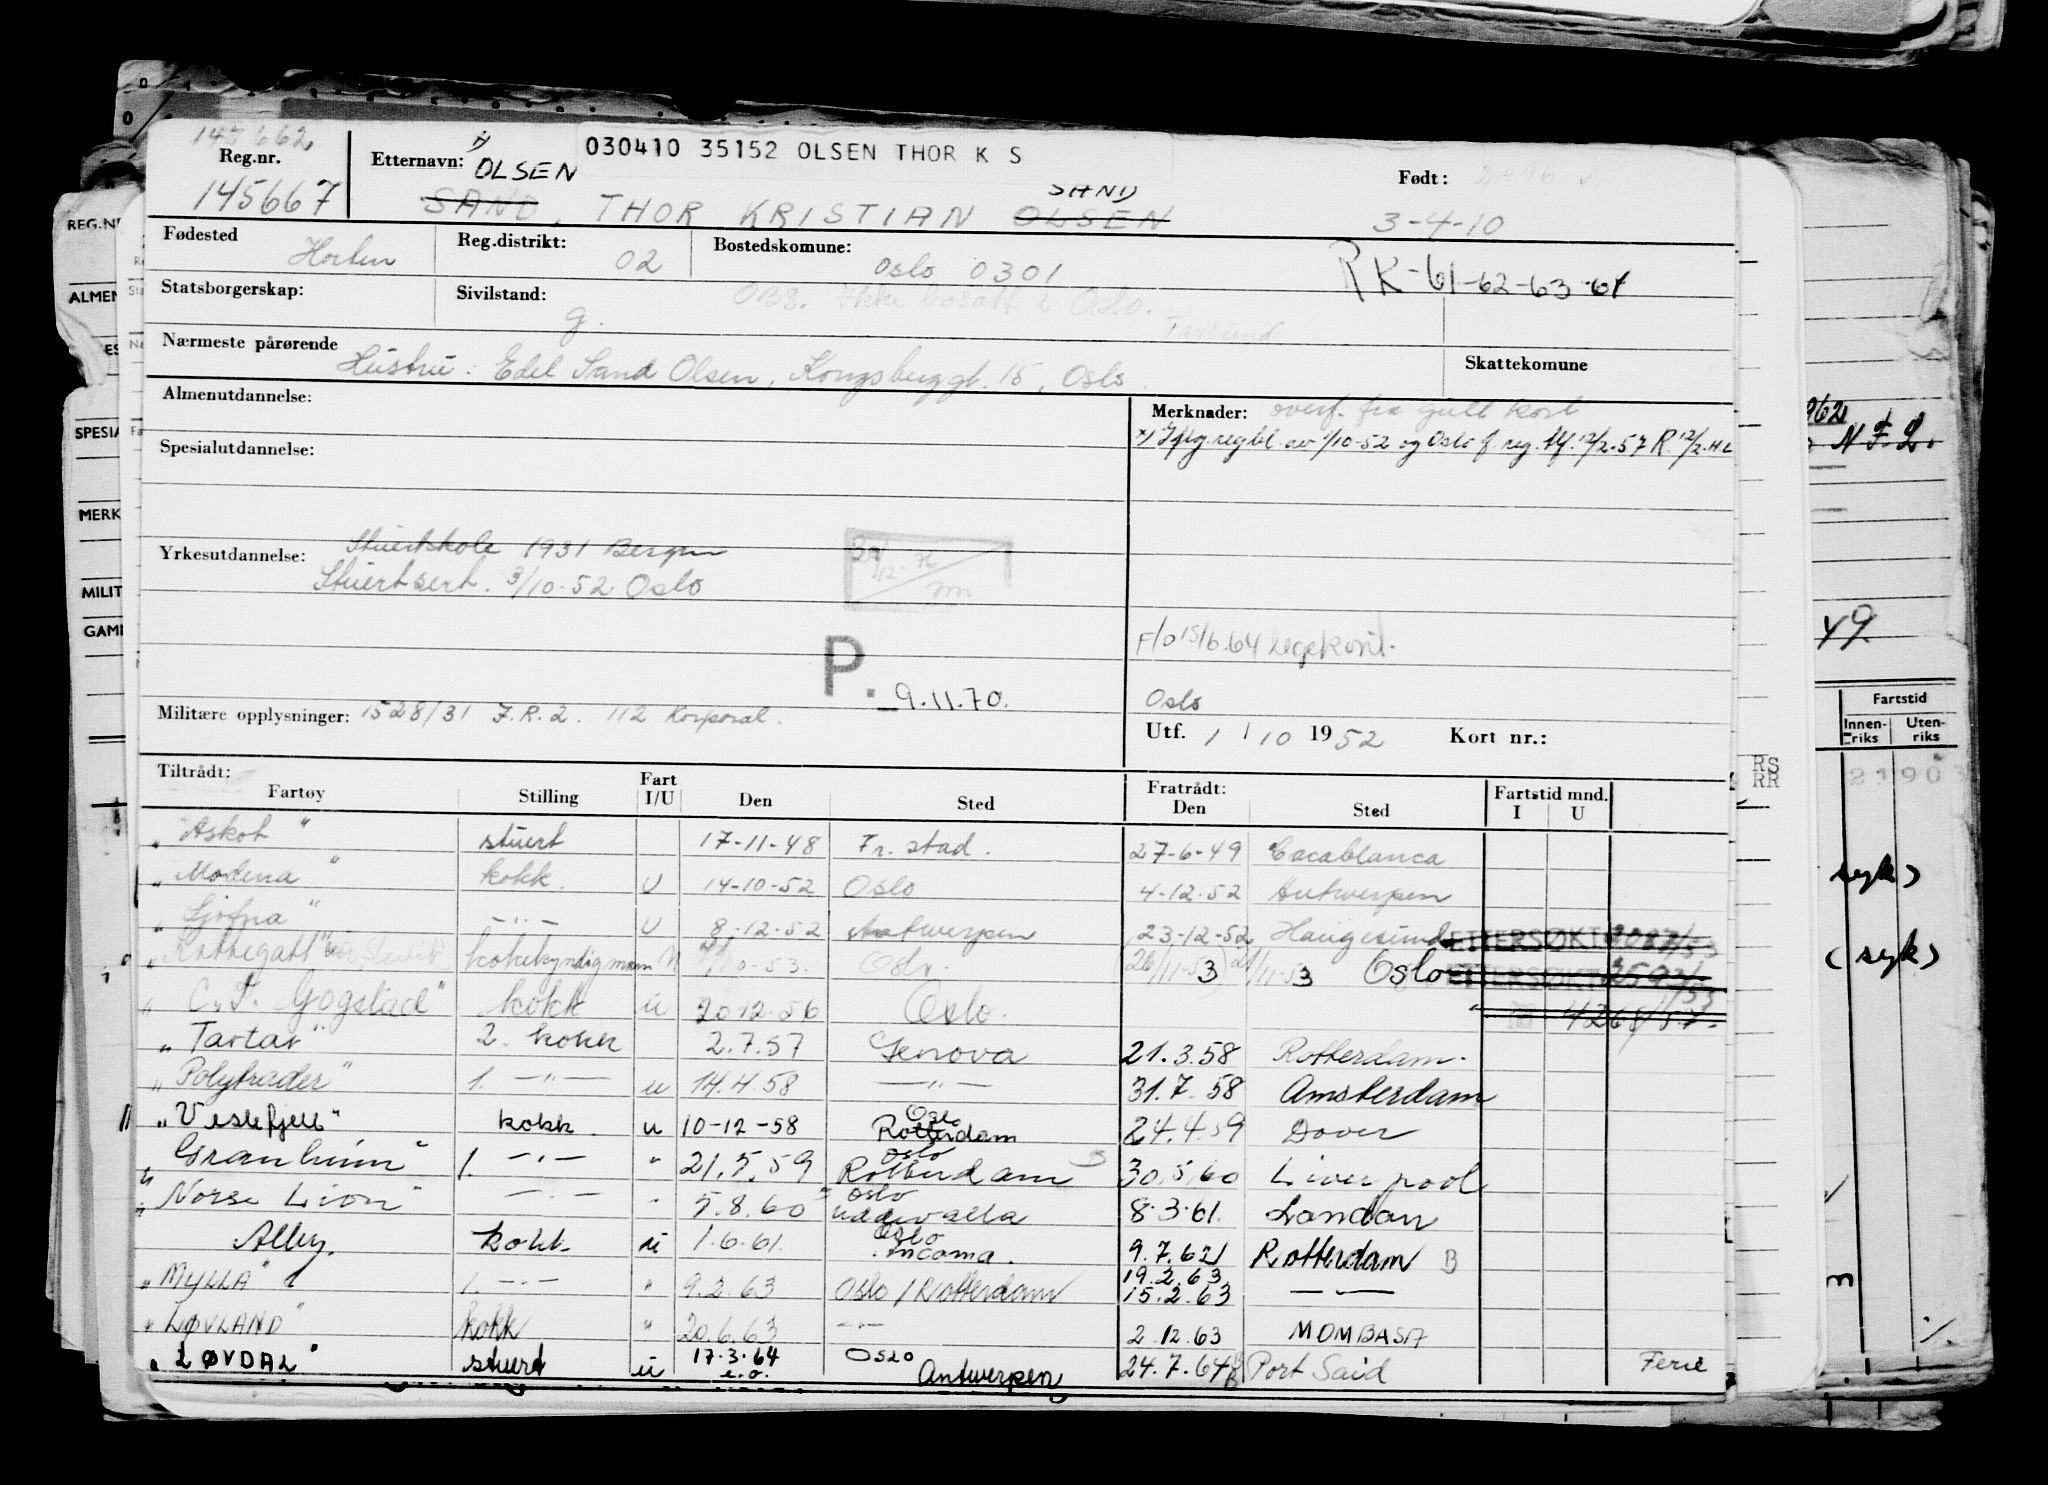 145662
Reg.nr.
145667
Etternavn: x) OLSEN
030410 35152 OLSEN THOR K S
SAND, THOR KRISTIAN OLSEN SAND
Født:
3-4-10
Fødested Horten
Reg.distrikt: 02
Bostedskomune: Oslo 0301
RK-61-62-63-64
Statsborgerskap:
Sivilstand: g.
OBS. Ikke bosatt i Oslo.
Nærmeste pårørende
Hustru: Edel Sand Olsen, Kongsberggt. 15, Oslo.
Skattekomune
Almenutdannelse:
Merknader: overf. fra gult kort
x) Iflg. regbl. av 1/10-52 og Oslo f. reg. tlf. 12/2-57 R. 12/2. H.L
Spesialutdannelse:
Yrkesutdannelse: Stuertskole 1931 Bergen
Stuertsert. 3/10-52 Oslo
F/O 15/6.64 legekont.
P. 9.11.70.
Oslo
Militære opplysninger: 1528/31 I.R.2. 112 Korporal.
Utf. 1 / 10 1952 Kort nr.:
Tiltrådt:
Fartøy Stilling Fart I/U Den Sted Fratrådt: Den Sted Fartstid mnd. I U
"Askot" stuert 17-11-48 Fr.stad. 27-6-49 Cacablanca
"Modena" kokk. U 14-10-52 Oslo 4-12-52 Antwerpen
"Sjofna" -"- U 8-12-52 Antwerpen 23-12-52 Haugesund ETTERSØKT 2087/53
"Kattegatt" kokekyndig mann Oslo. (26/11-53) 21/11-53 Oslo ETTERSØKT 2593/53
"C.T. Gogstad" kokk u 20-12-56 Oslo. 4268/57-
"Tartar" 2. kokk 2.7.57 Genova 21.3.58 Rotterdam.
"Polytrader" 1. -"- u 14.4.58 -"- 31.7.58 Amsterdam
"Veslefjell" kokk. u 10-12-58 Oslo Rotterdam 24.4.59 Dover
"Granheim" 1. -"- " 21.5.59 Oslo Rotterdam 30.5.60 Liverpool
"Norse Lion" -"- " 5.8.60 Oslo Uddevalla 8.3.61. London
Alby. kokk. u 1.6.61. Oslo 9.7.62 Rotterdam B
"MYLLA" 1. -"- " 9.2.63 Oslo/Rotterdam 19.2.63 15.2.63 -"-
"LØVLAND" kokk " 20.6.63 -"- 2.12.63 MOMBASA
"LØVDAL" stuert u 17.3.64 e.o. Oslo Antwerpen 24.7.64 Port Said Ferie
REG.N
ALMEN
SPESIA
MERK
MILIT
GAM
962
N F. L.
49
Fartstid
Innen-riks Uten-riks
RS
RR
syk)
(syk)